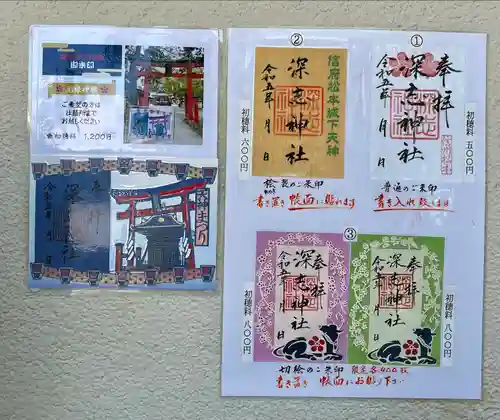 御朱印
ご希望の方は
社務所まで
お越しください
初穂料 1,200円
奉拝
深志神社
②
信府松本城下天神
深志神社
令和五年 月 日
初穂料 六〇〇
書き置き 帳面に貼れます
①
奉拝
深志神社
令和五年 月 日
初穂料 五〇〇
普通のご朱印
書き入れ致します
③
奉拝
深志神社
令和五年 月 日
初穂料 八〇〇
奉拝
深志神社
令和五年 月 日
初穂料 八〇〇
切絵のご朱印 限定各400枚
書き置き 帳面にお貼り下さい